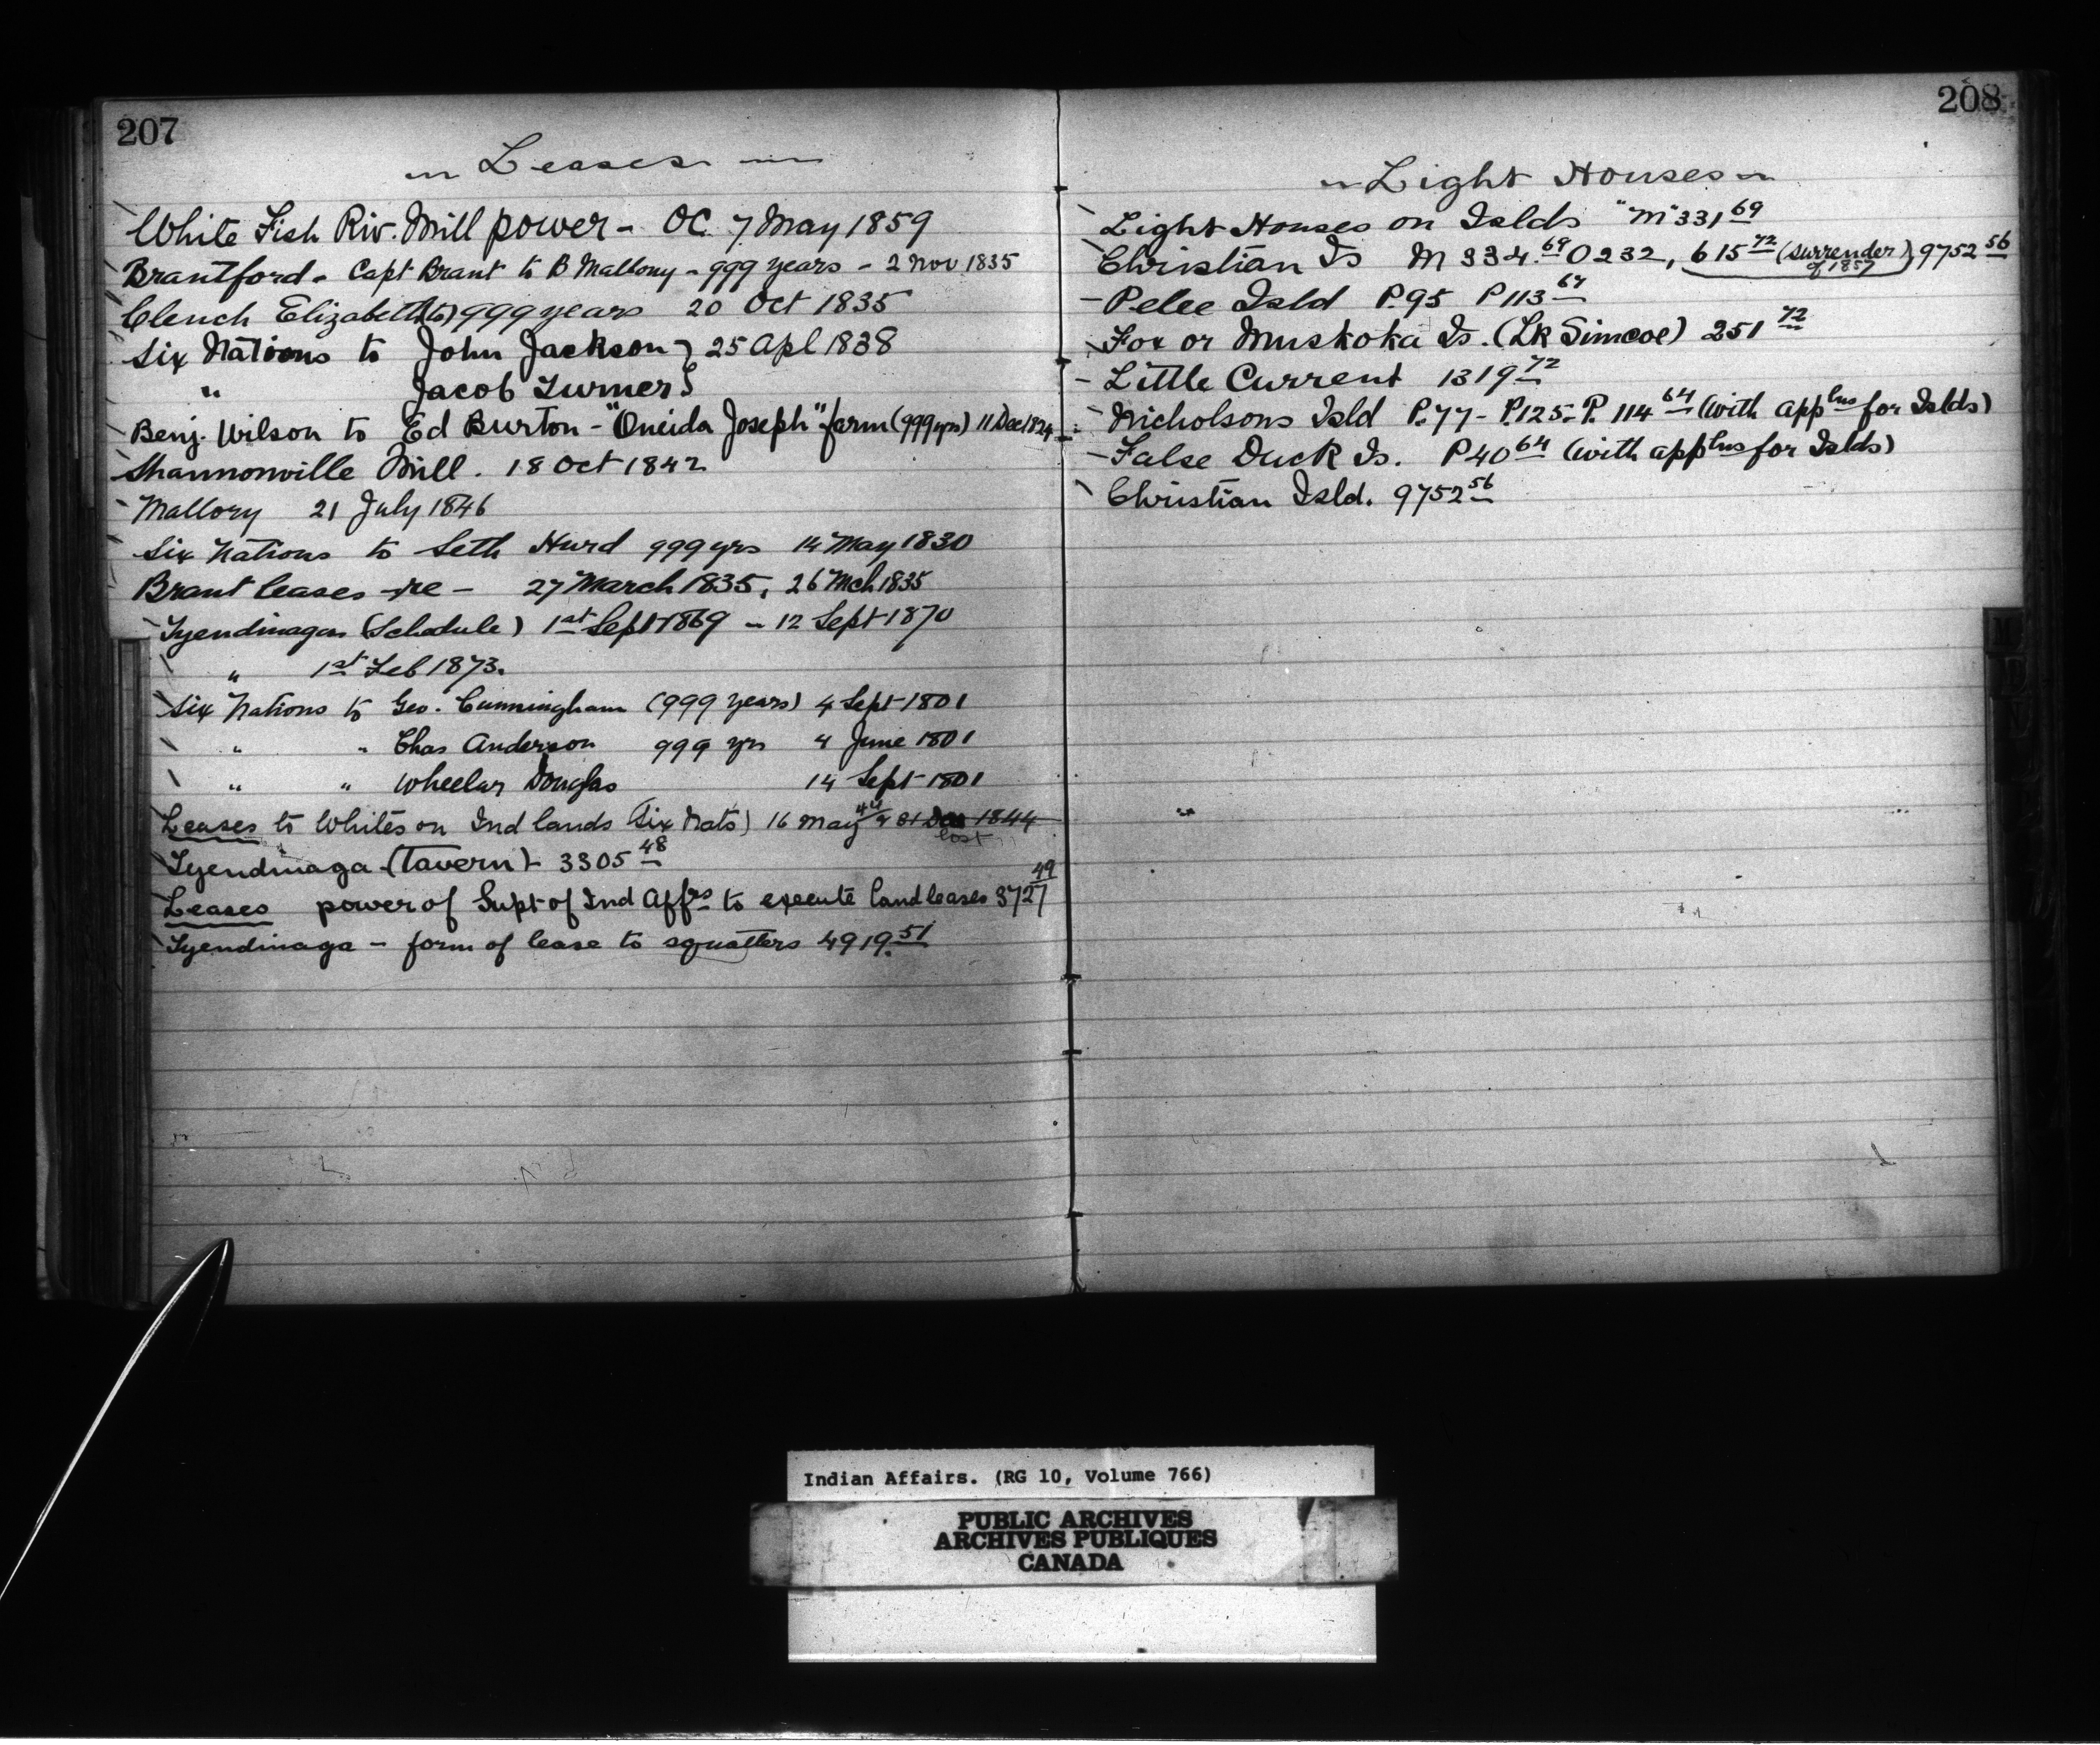 207
Leases
White Fish Riv. Mill power - OC. 7 May 1859
Brantford - Capt Brant to B Mallony - 999 years - 2 Nov 1835
Clench Elizabeth (to) 999 years 20 Oct 1835
Six Nations to John Jackson } 25 Apl 1838
" Jacob Turner }
Benj. Wilson to Ed Burton - "Oneida Joseph" farm (999 yrs) 11 Dec 1824
Shannonville Mill. 18 Oct 1842
Mallory 21 July 1846
Six Nations to Seth Hurd 999 yrs 14 May 1830
Brant leases - re - 27 March 1835, 26 Mch 1835
Tyendinaga (Schedule) 1st Sept 1869 - 12 Sept 1870
" 1st Feb 1873.
Six Nations to Geo. Cunningham (999 years) 4 Sept 1801
" " Chas Anderson 999 yrs 4 June 1801
" " Wheelar Douglas 14 Sept 1801
Leases to Whites on Ind lands (Six Nats) 16 May 44 & 31 Dec 1844
lost
Tyendinaga (Tavern) - 3305 48
Leases power of Supt of Ind Affrs to execute land leases 3727 49
Tyendinaga - form of lease to squatters 4919. 51
208
Light Houses
Light Houses on Islds "M" 331 69
Christian Is M 334. 69 O 232, 615 72 (surrender of 1857) 9752 56
- Pelee Isld P. 95 P 113 64
Fox or Muskoka Is. (Lk Simcoe) 251 72
- Little Current 1319 72
- Nicholsons Isld P. 77 - P. 125 - P. 114 64 (with applns for Islds)
- False Duck Is. P 40 64 (with applns for Islds)
Christian Isld. 9752 56
Indian Affairs. (RG 10, Volume 766)
PUBLIC ARCHIVES
ARCHIVES PUBLIQUES
CANADA